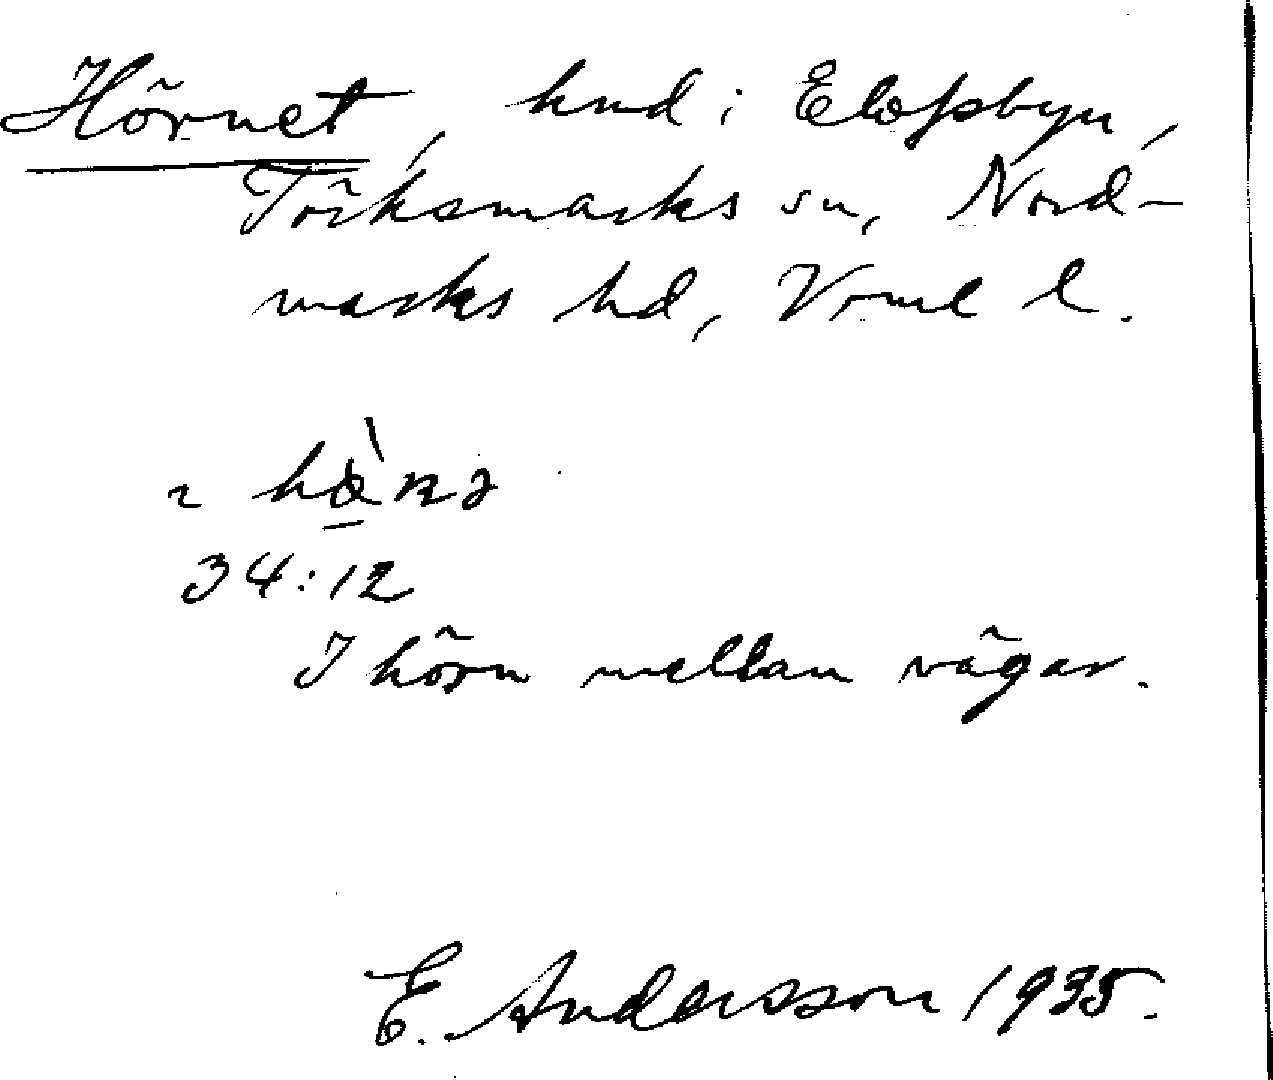 Hörnet, hmd i Elofsbyn,
Töcksmarks sn, Nord-
marks hd, Vrml l.
34:12
I hörn mellan vägar.
E. Andersson 1935.